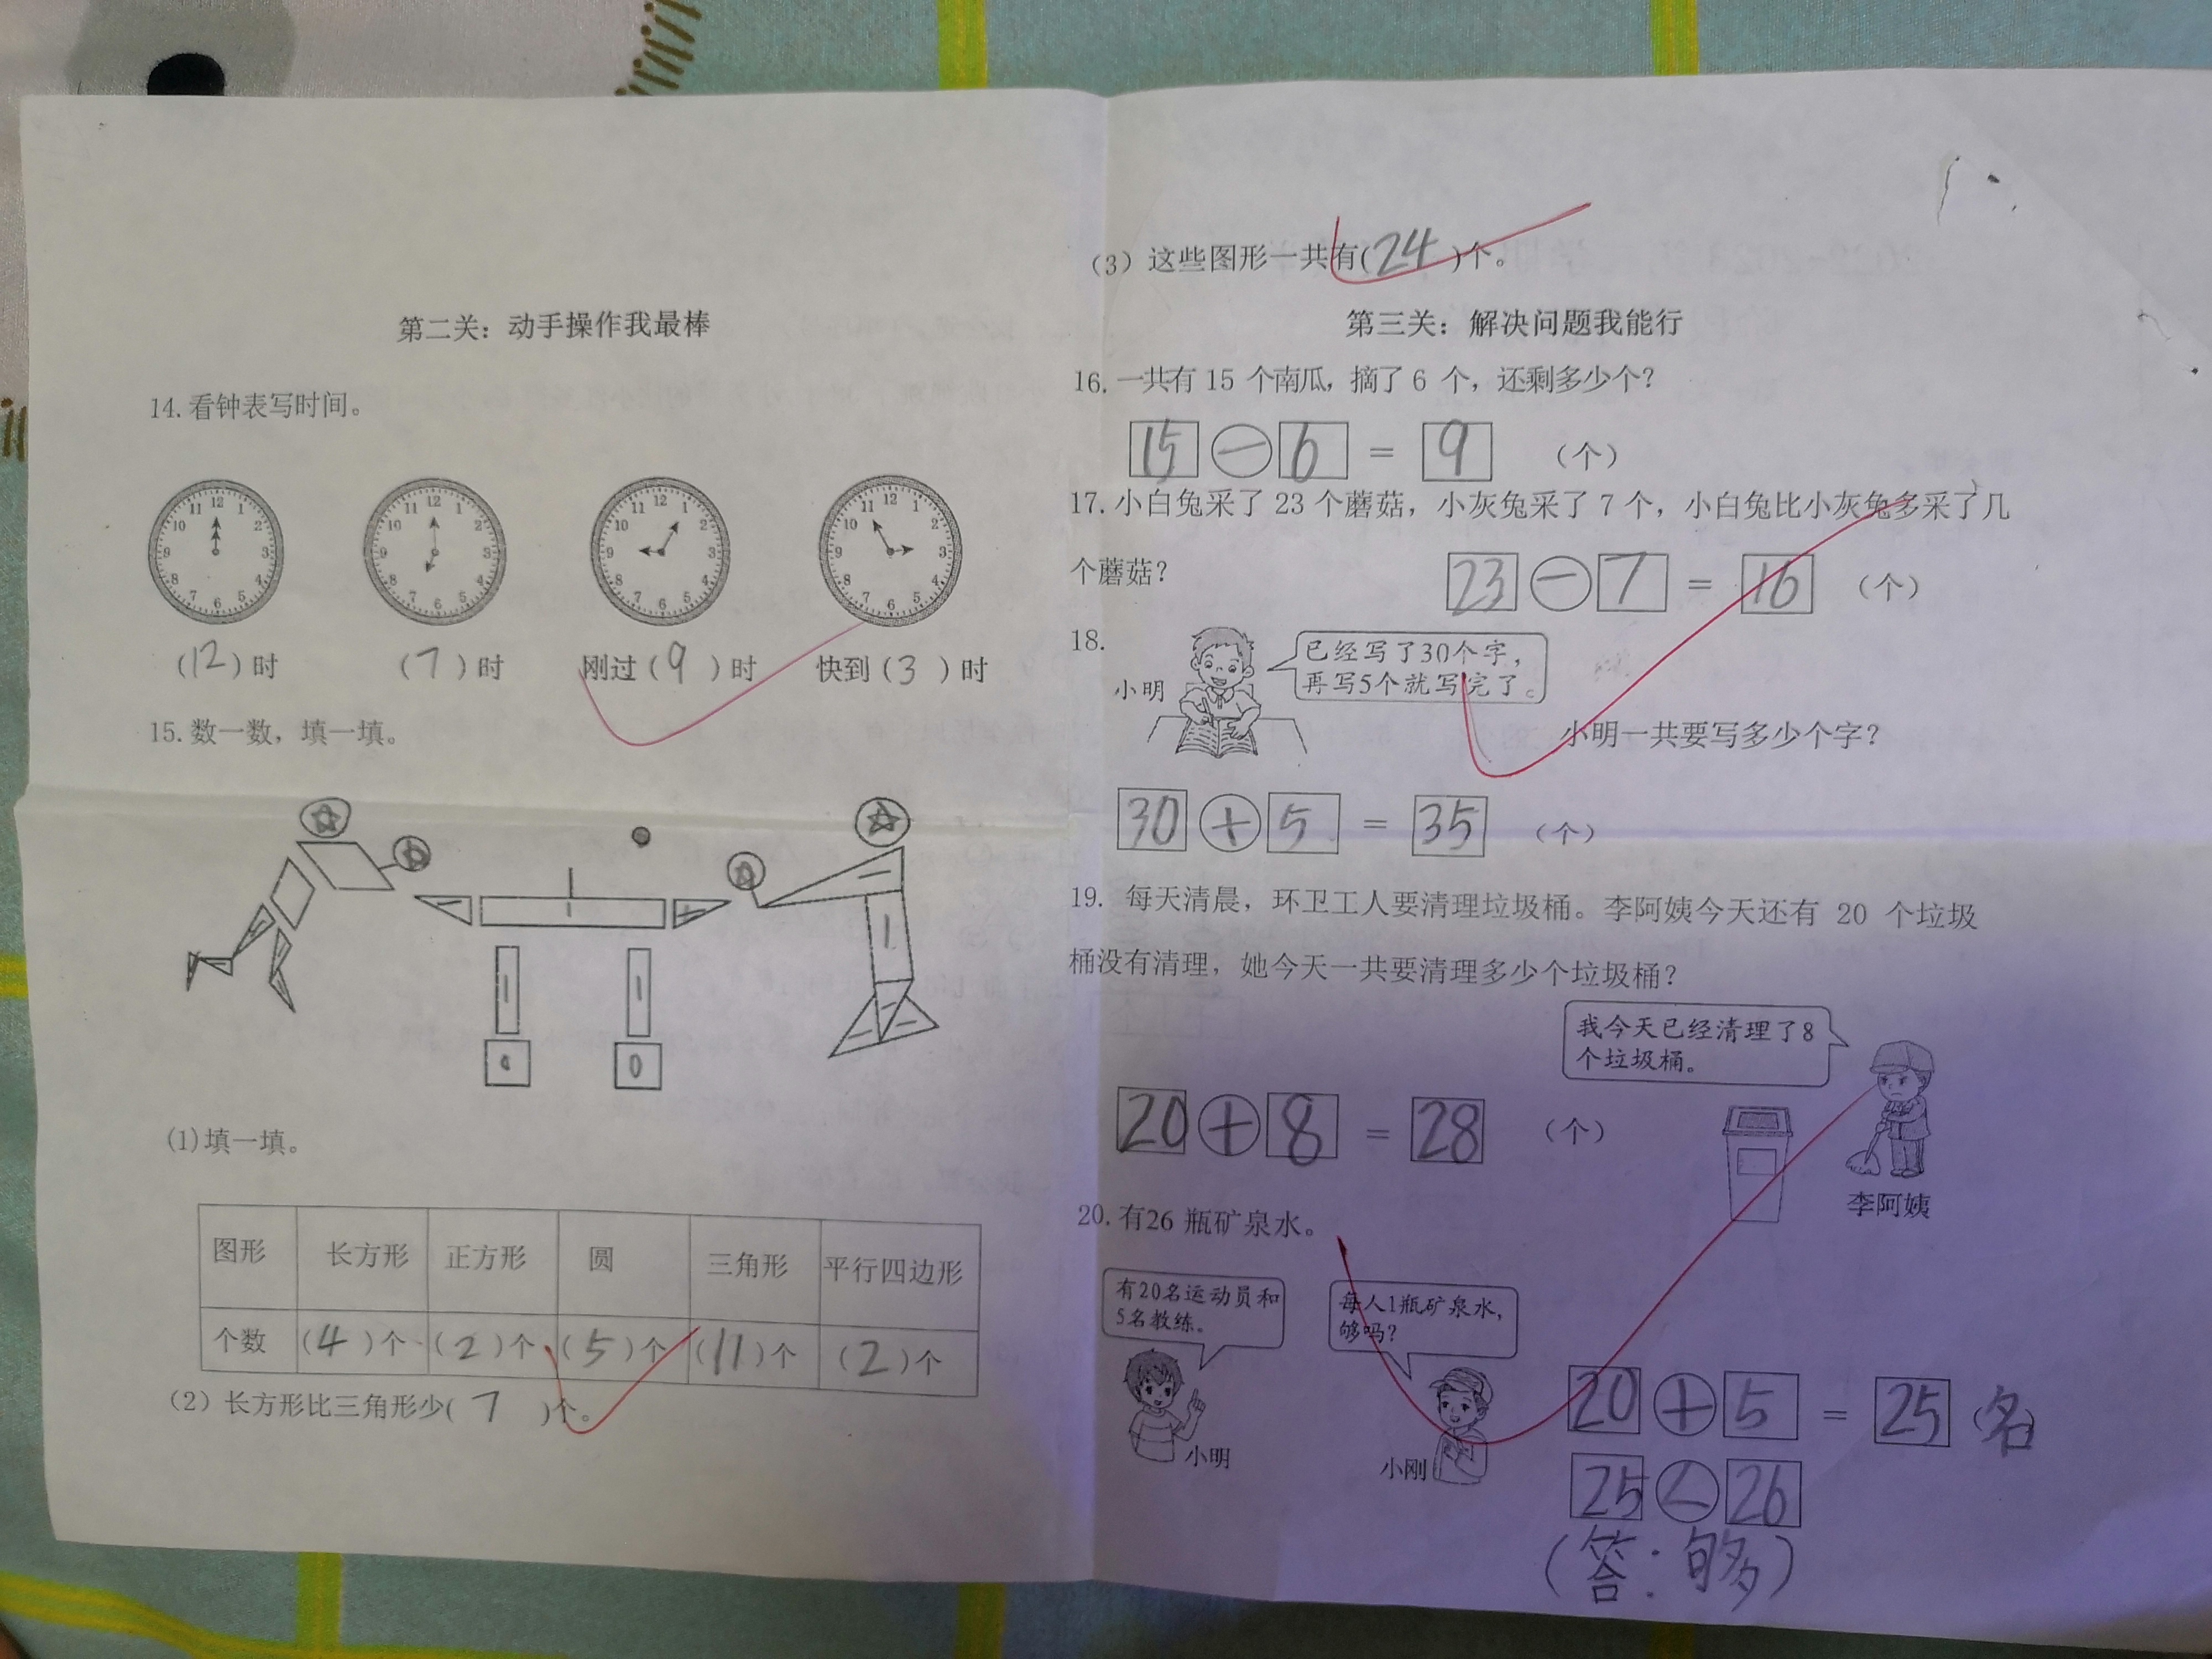 第二关：动手操作我最棒
14.看钟表写时间。
12 1 2 3 4 5 6 7 8 9 10 11
12 1 2 3 4 5 6 7 8 9 10 11
12 1 2 3 4 5 6 7 8 9 10 11
12 1 2 3 4 5 6 7 8 9 10 11
(12)时 (7)时 刚过(9)时 快到(3)时
15.数一数，填一填。
(1)填一填。
图形 长方形 正方形 圆 三角形 平行四边形
个数 (4)个 (2)个 (5)个 (11)个 (2)个
(2) 长方形比三角形少(7)个。
(3) 这些图形一共有(24)个。
第三关：解决问题我能行
16.一共有 15 个南瓜，摘了 6 个，还剩多少个？
15 - 6 = 9 (个)
17.小白兔采了 23 个蘑菇，小灰兔采了 7 个，小白兔比小灰兔多采了几
个蘑菇？
23 - 7 = 16 (个)
18.
小明
已经写了30个字，
再写5个就写完了。
小明一共要写多少个字？
30 + 5 = 35 (个)
19. 每天清晨，环卫工人要清理垃圾桶。李阿姨今天还有 20 个垃圾
桶没有清理，她今天一共要清理多少个垃圾桶？
我今天已经清理了8
个垃圾桶。
20 + 8 = 28 (个)
李阿姨
20.有26 瓶矿泉水。
有20名运动员和
5名教练。
小明
每人1瓶矿泉水，
够吗？
小刚
20 + 5 = 25 (名)
25 < 26
(答：够)